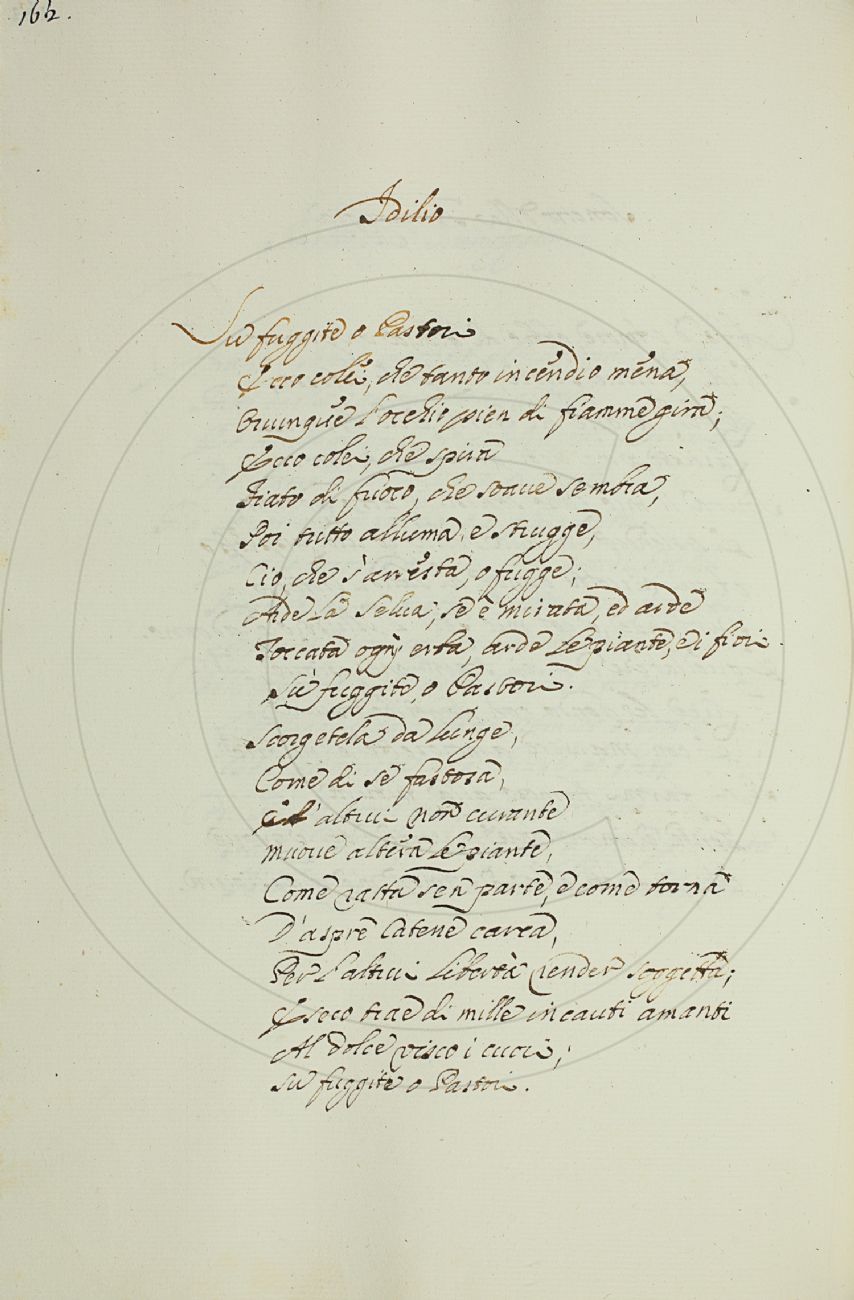 162.
Idilio
Sù fuggite o Pastori
Ecco colei, che tanto incendio mena,
Ovunque l'occhio pien di fiamme gira;
Ecco colei, che spira
Fiato di fuoco, che soaue sembra,
Poi tutto alluma, e strugge,
Ciò, che s'arresta, o fugge;
Arde la selua, se è mirata, ed arde
Toccata ogn'erba, arde le piante, e i fiori
Sù fuggite, o Pastori.
Scorgetela da lunge,
Come di se fastosa,
E d'altrui non curante
Muoue altera le piante,
Come ratta sen parte, e come torna
D'aspre Catene carca,
Per l'altrui libertà render soggetta;
E seco trae di mille incauti amanti
Al dolce visco i cuori;
Sù fuggite o Pastori.